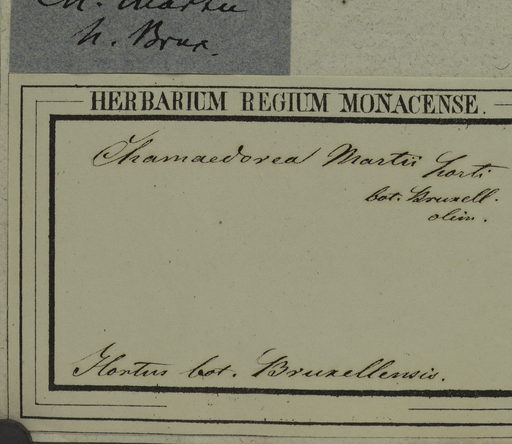 Ch. Martii
h. Brux.
HERBARIUM REGIUM MONACENSE.
Chamaedorea Martii horti
bot. Bruxell.
olim.
Hortus bot. Bruxellensis.